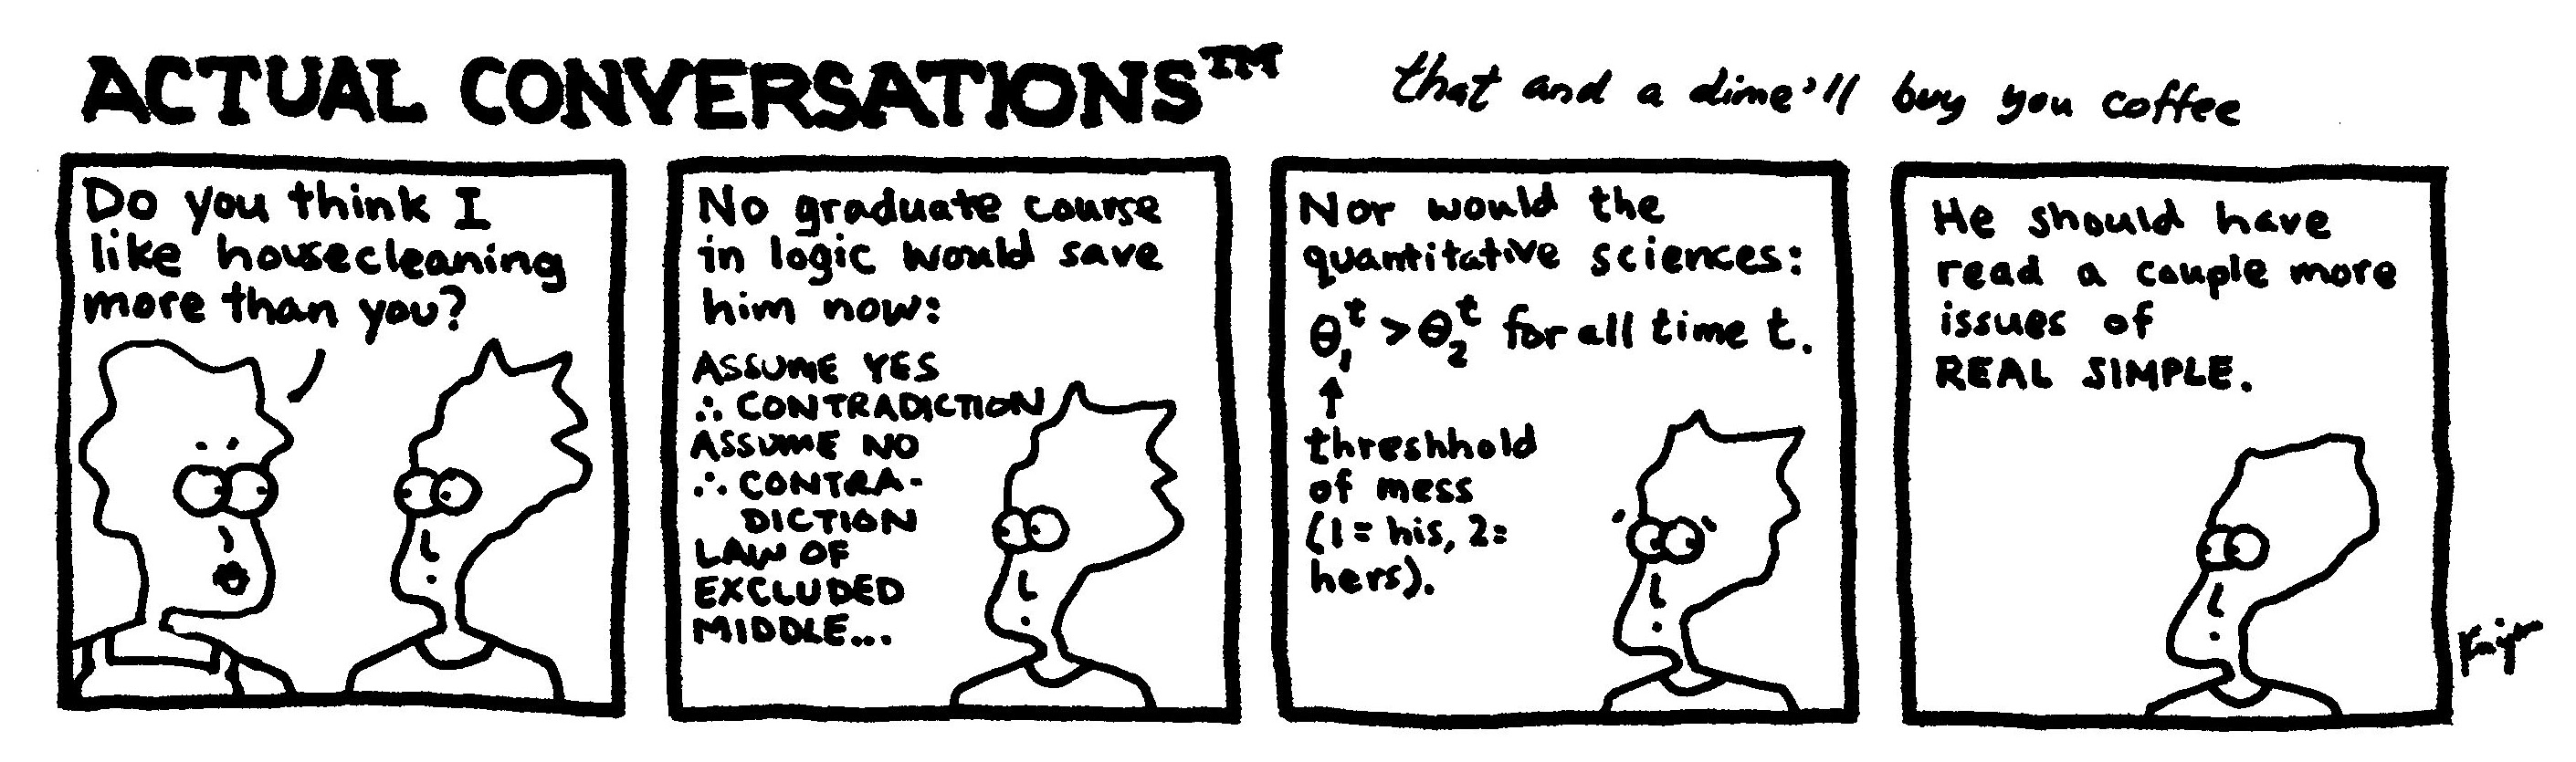 ACTUAL CONVERSATIONS™
that and a dime'll buy you coffee
Do you think I
like housecleaning
more than you?
No graduate course
in logic would save
him now:
ASSUME YES
∴ CONTRADICTION
ASSUME NO
∴ CONTRA-
DICTION
LAW OF
EXCLUDED
MIDDLE...
Nor would the
quantitative sciences:
θ₁ᵗ > θ₂ᵗ for all time t.
↑
threshhold
of mess
(1 = his, 2 =
hers).
He should have
read a couple more
issues of
REAL SIMPLE.